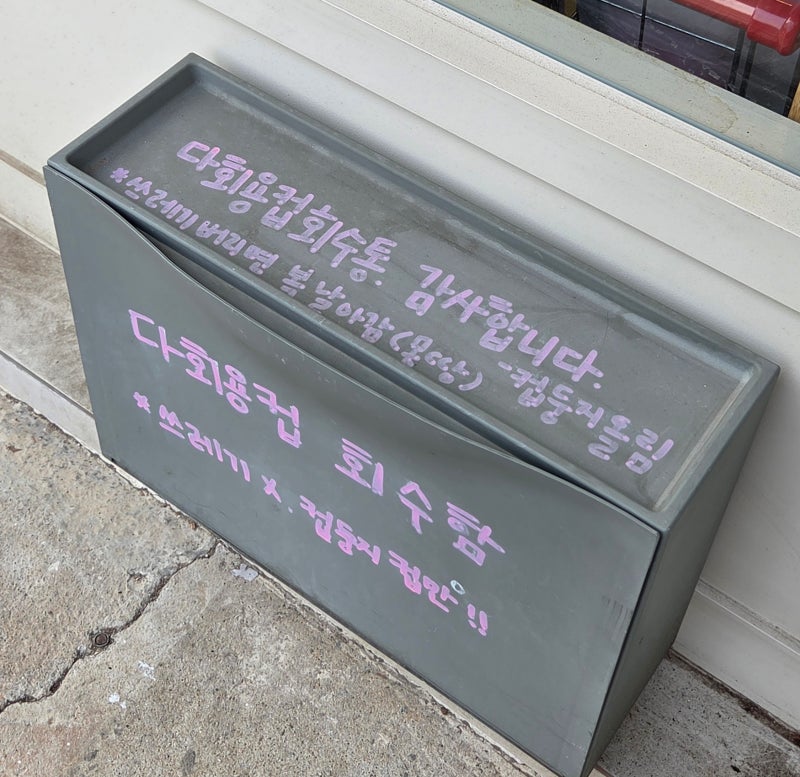 다회용컵회수통. 감사합니다.
*쓰레기 버리면 복 날아감(몽땅) -컵둥지올림
다회용컵 회수함
*쓰레기 X. 컵둥지 컵만!!